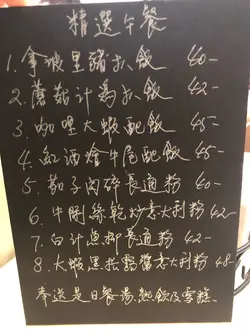 精選午餐
1. 拿坡里豬扒飯 40-
2. 蘑菇汁雞扒飯 42-
3. 咖喱大蝦配飯 45-
4. 紅酒燴牛尾配飯 45-
5. 茄子肉碎長通粉 40-
6. 牛肝 炒意大利粉 42-
7. 白汁魚柳長通粉 42-
8. 大蝦黑松露醬意大利粉 48-
奉送是日餐湯,熱飲及雪糕